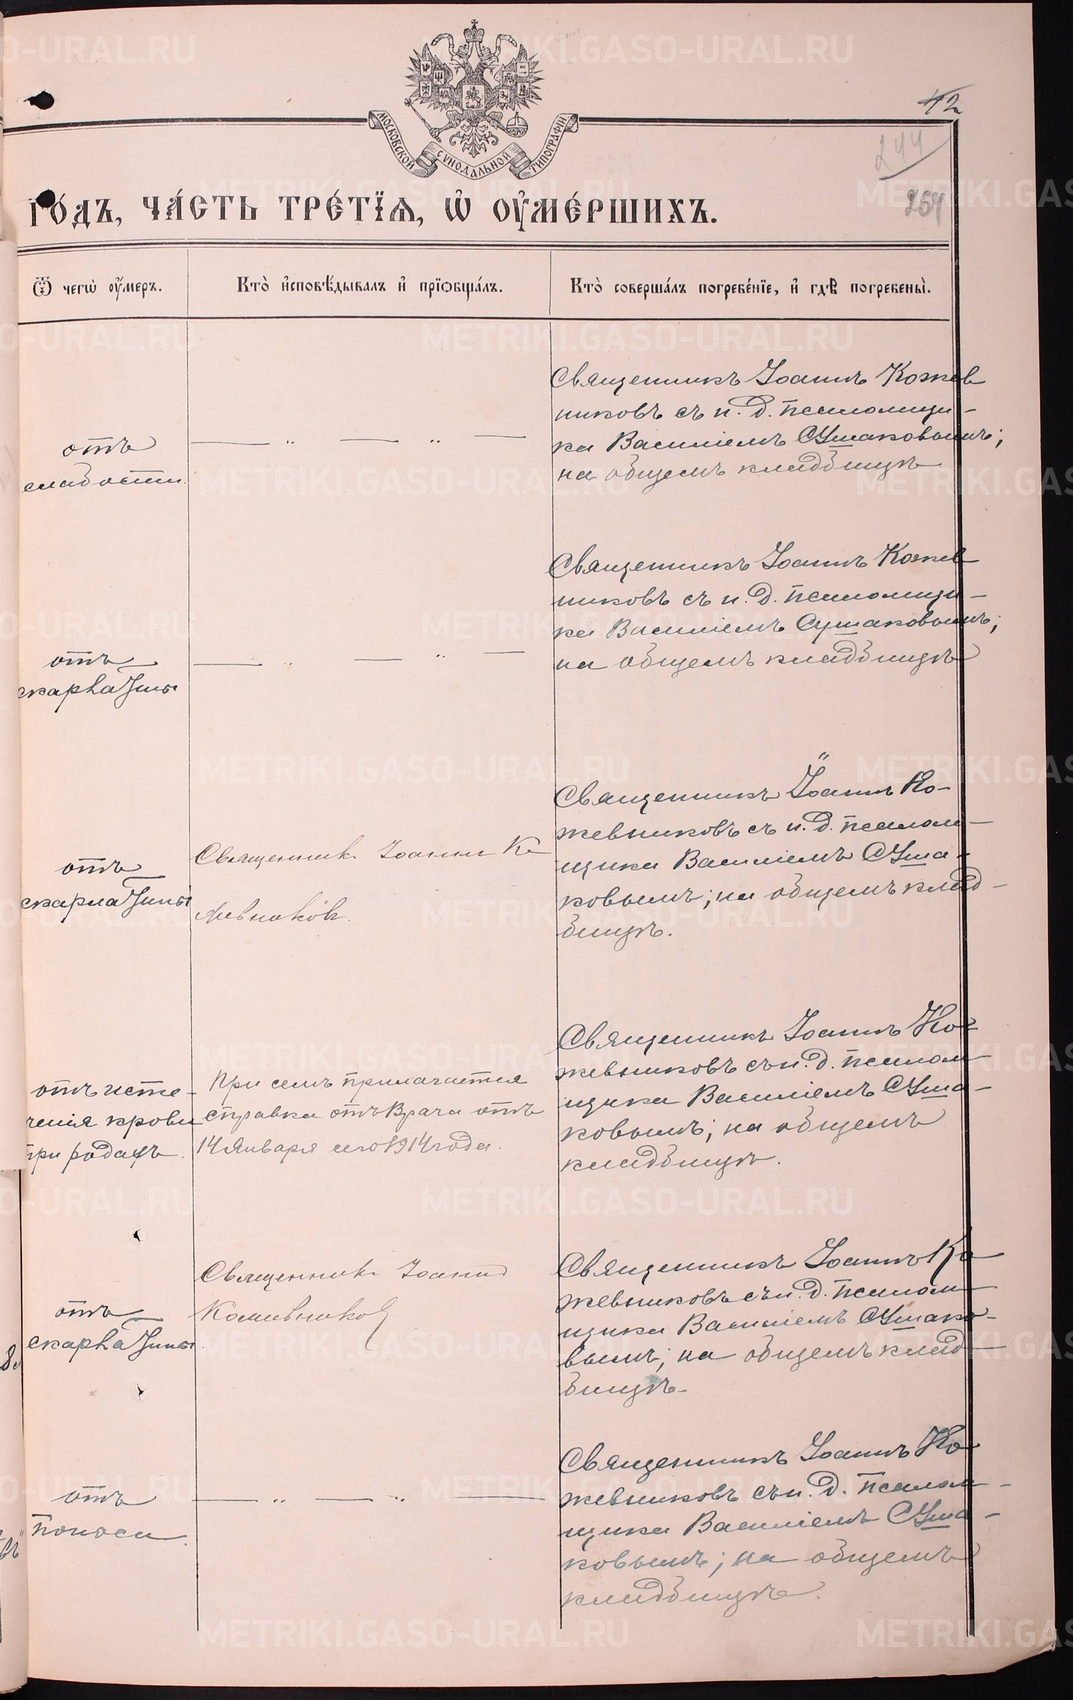 42
244
254
МОСКОВСКОЙ СѴНОДАЛЬНОЙ ТИПОГРАФІИ
ГО́ДЪ, ЧА́СТЬ ТРЕ́ТЇѦ, Ѡ҆ ОУ҆МЕ́РШИХЪ.
Ѿ чегѡ̀ оу҆́меръ.
Кто̀ и҆сповѣ́дывалъ и҆ прїѡбща́лъ.
Кто̀ соверша́лъ погребе́нїе, и҆ гдѣ̀ погребены̀.
отъ
слабости.
Священникъ Іоаннъ Кожев
никовъ съ и. д. псаломщи-
ка Василіемъ Сушаковымъ;
на общемъ кладбищѣ
отъ
скарлатины
Священникъ Іоаннъ Кожев
никовъ съ и. д. псаломщи-
ка Василіемъ Сушаковымъ;
на общемъ кладбищѣ
отъ
скарлатины
Священникъ Іоаннъ Ко
жевниковъ.
Священникъ Іоаннъ Ко-
жевниковъ съ и. д. псалом-
щика Василіемъ Суша-
ковымъ; на общемъ клад-
бищѣ.
отъ исте-
ченія крови
при родахъ.
При семъ прилагается
справка отъ Врача отъ
14 Января сего 1914 года.
Священникъ Іоаннъ Ко-
жевниковъ съ и. д. псалом
щика Василіемъ Суша-
ковымъ; на общемъ
кладбищѣ.
отъ
скарлатины.
Священникъ Іоаннъ
Кожевниковъ
Священникъ Іоаннъ Ко
жевниковъ съ и. д. псалом
щика Василіемъ Сушако-
вымъ; на общемъ клад-
бищѣ.
отъ
поноса.
Священникъ Іоаннъ Ко-
жевниковъ съ и. д. псалом-
щика Василіемъ Суша-
ковымъ; на общемъ
кладбищѣ.
METRIKI.GASO-URAL.RU